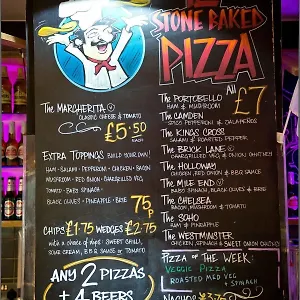 STONE BAKED
PIZZA
The MARGHERITA
CLASSIC CHEESE & TOMATO
£5.50
EACH
EXTRA TOPPINGS BUILD YOUR OWN!
HAM • SALAMI • PEPPERONI • CHICKEN • BACON
MUSHROOM • RED ONION • CHARGRILLED VEG
TOMATO • BABY SPINACH
BLACK OLIVES • PINEAPPLE • BRIE
75p
CHIPS £1.75 WEDGES £2.75
with a choice of dips: SWEET CHILLI,
SOUR CREAM, BBQ SAUCE or TOMATO
ANY 2 PIZZAS
+ 4 BEERS
All £7
The PORTOBELLO
HAM & MUSHROOM
The CAMDEN
SPICY PEPPERONI & JALAPENOS
The KINGS CROSS
SALAMI & ROASTED PEPPER
The BRICK LANE
CHARGRILLED VEG & ONION CHUTNEY
The HOLLOWAY
CHICKEN, RED ONION & BBQ SAUCE
The MILE END
BABY SPINACH, BLACK OLIVES & BRIE
The CHELSEA
BACON, MUSHROOM & TOMATO
The SOHO
HAM & PINEAPPLE
The WESTMINSTER
CHICKEN, SPINACH & SWEET ONION CHUTNEY
PIZZA OF THE WEEK:
VEGGIE PIZZA
ROASTED MED VEG
+ SPINACH
NACHOS